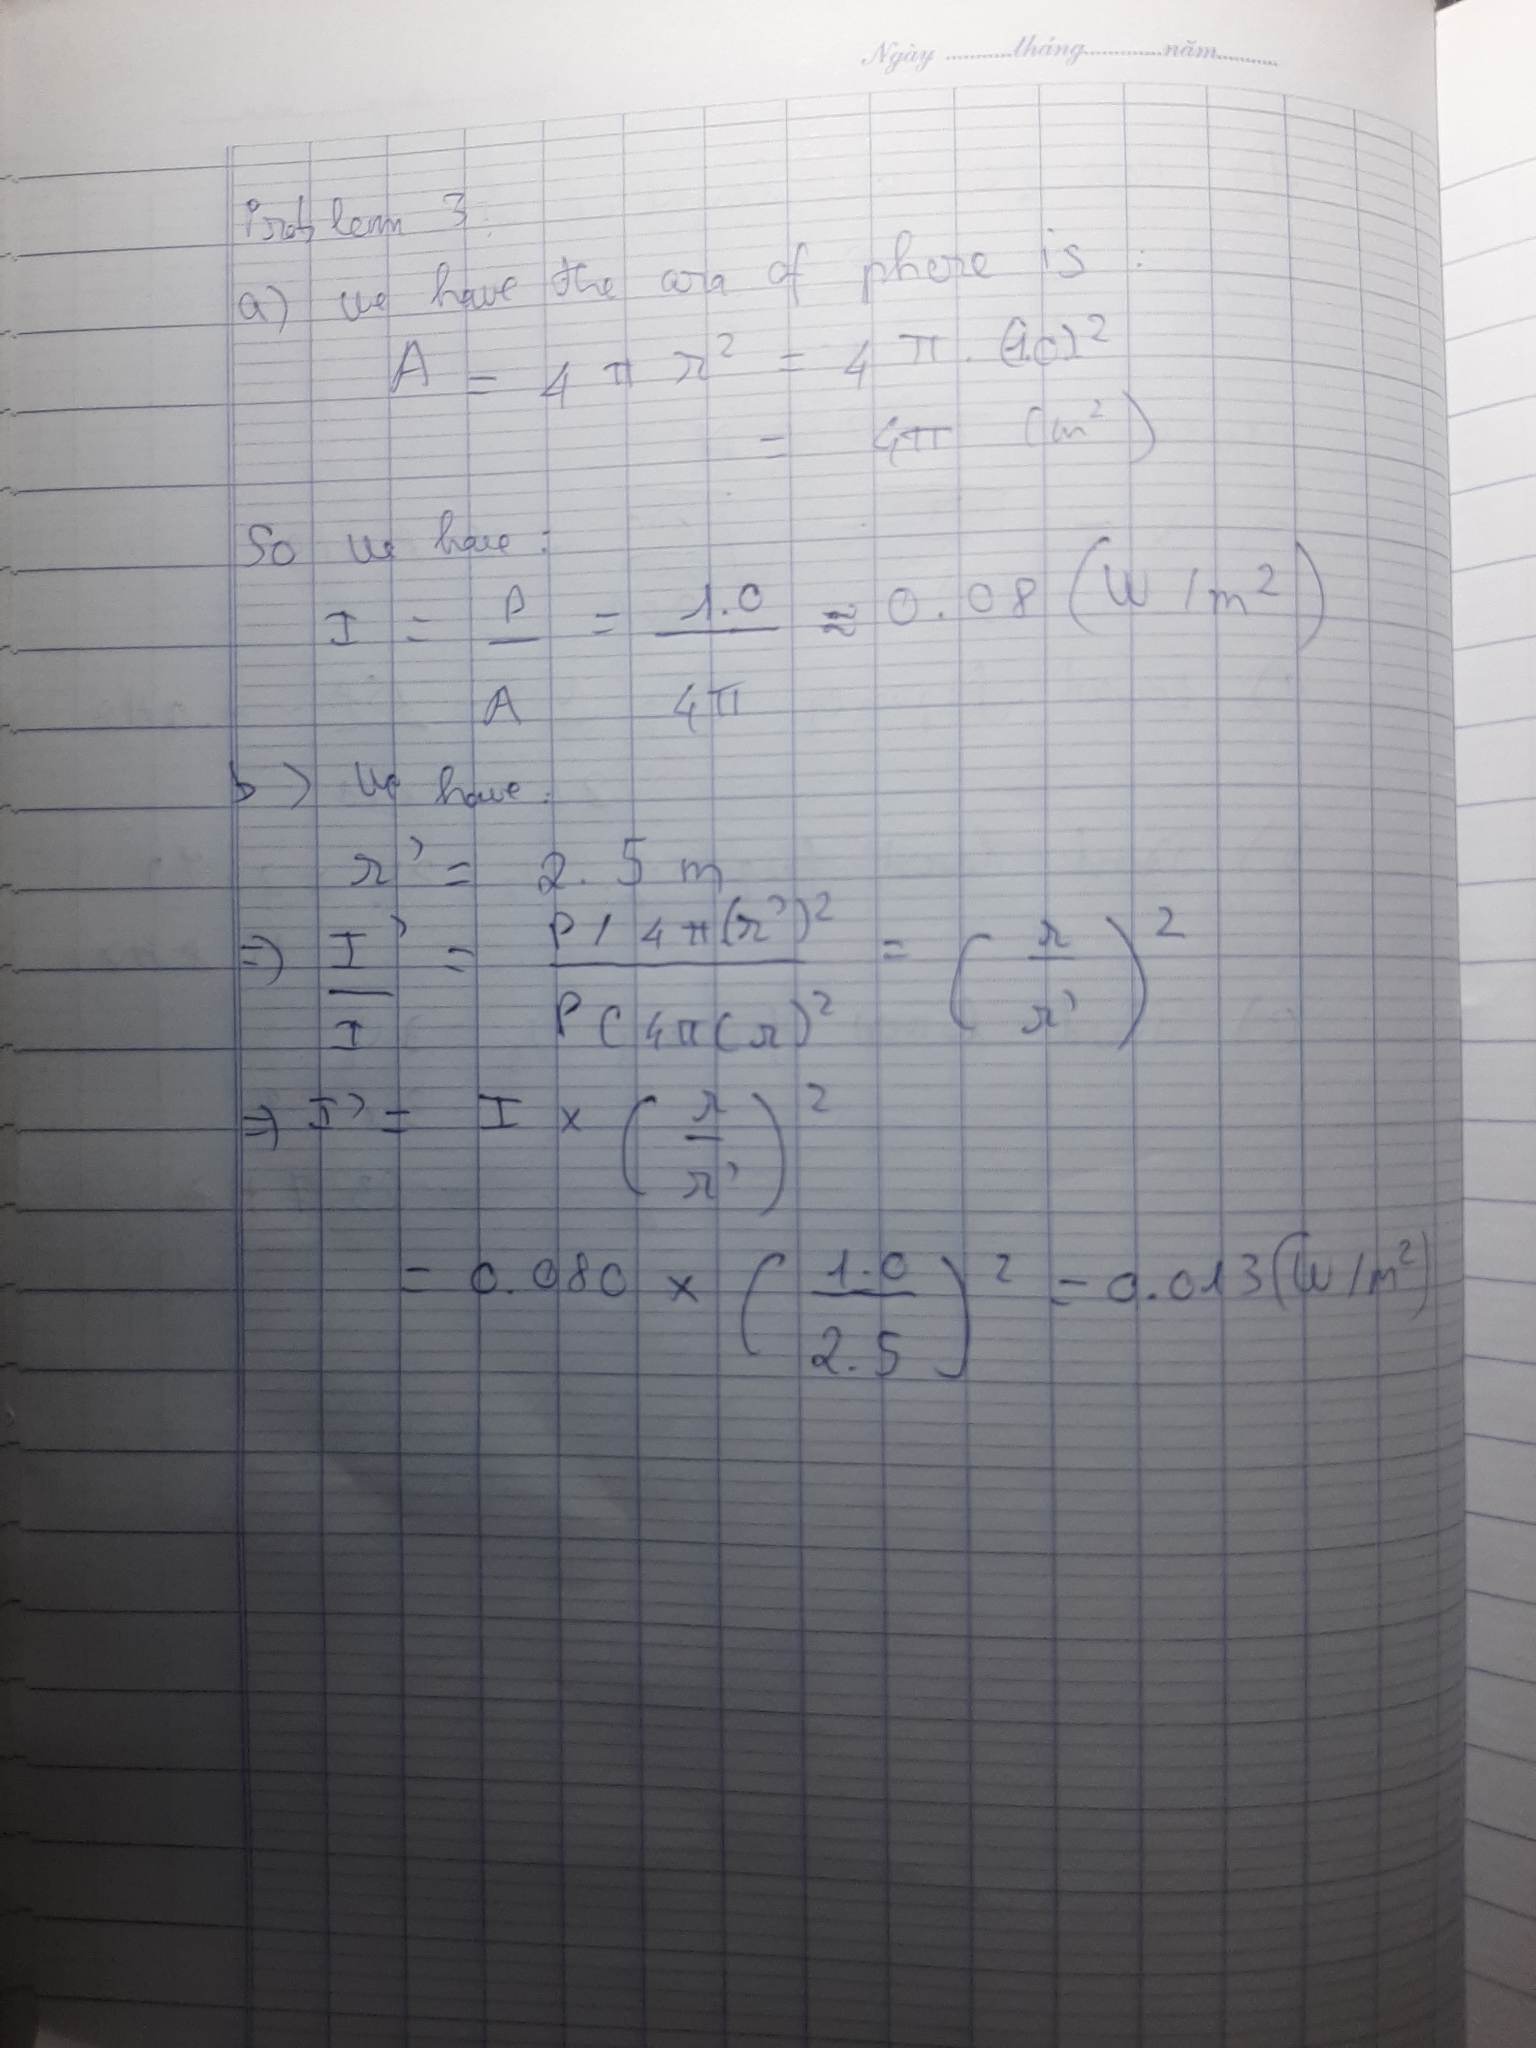 Ngày ............tháng..............năm...........
Problem 3:
a) we have the area of phere is :
A = 4 π r² = 4 π . (1.0)²
= 4π (m²)
So we have :
I = P / A = 1.0 / 4π ≈ 0.08 (W/m²)
b) We have :
r' = 2.5 m
⇒ I' / I = P / 4π(r')² / P ( 4π(r)² = ( r / r' )²
⇒ I' = I × ( r / r' )²
= 0.080 × ( 1.0 / 2.5 )² = 0.013 (W/m²)